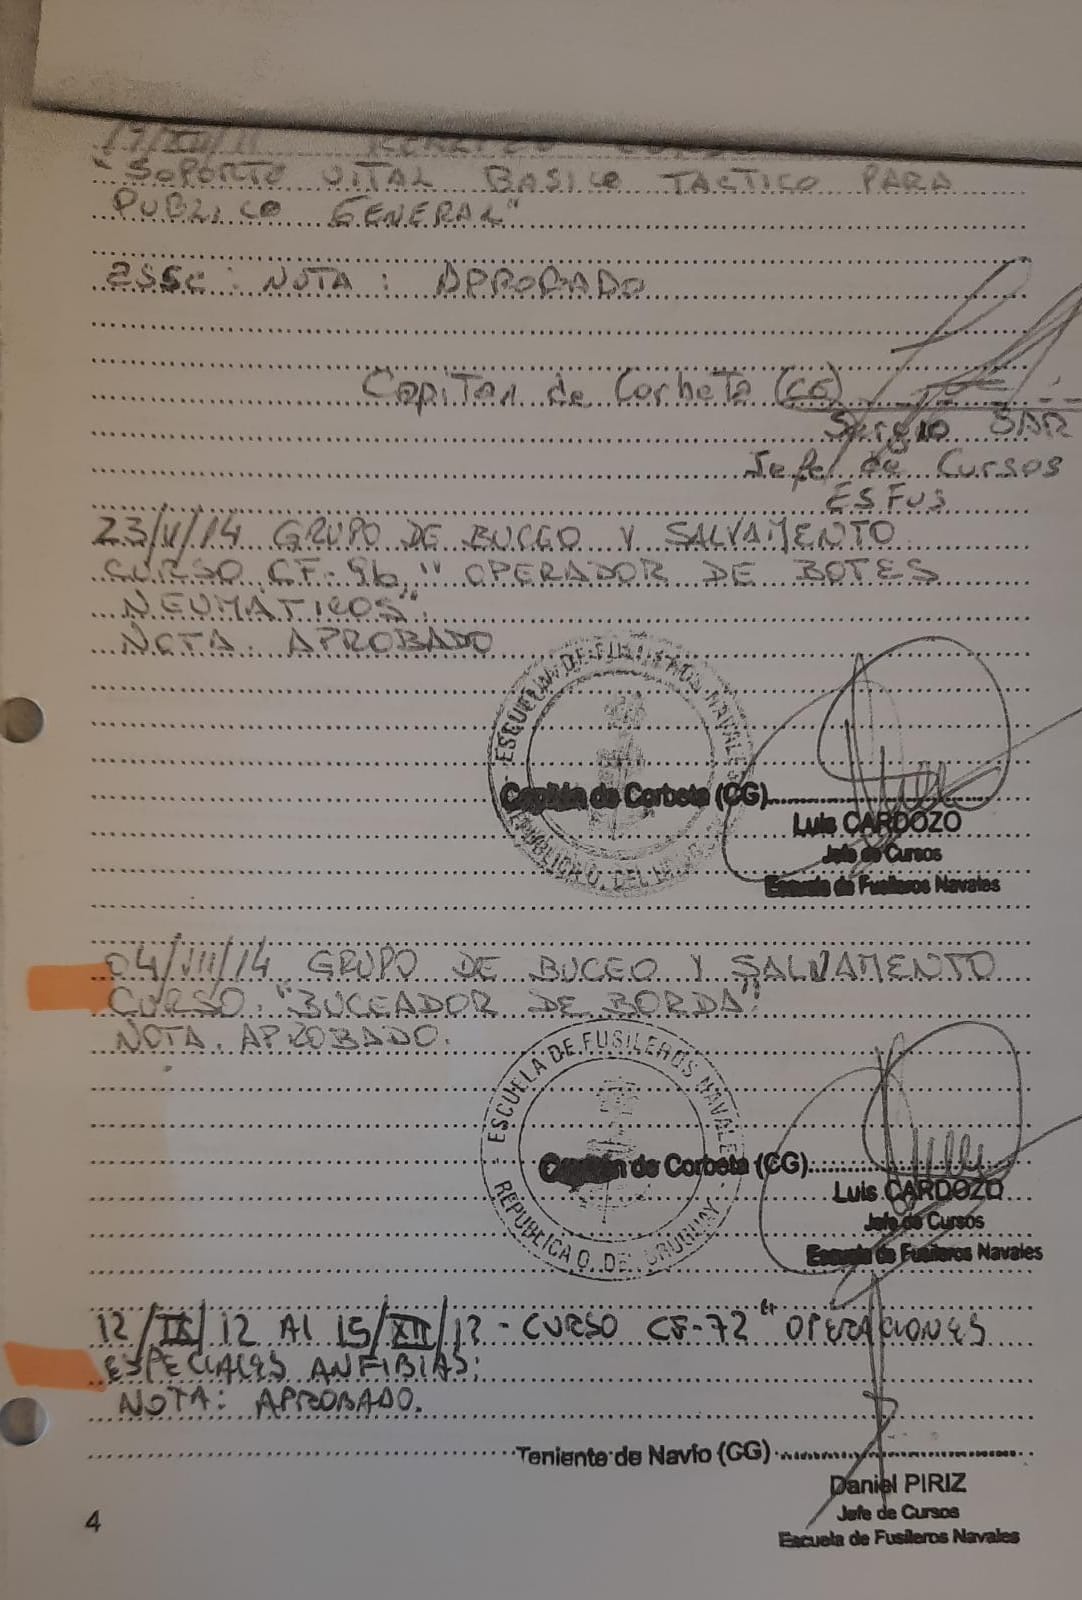 "SOPORTE VITAL BASICO TACTICO PARA
PUBLICO GENERAL"
NOTA: APROBADO
Capitan de Corbeta (CG)
Sergio
Jefe de Cursos
ESFUS
23/V/14 GRUPO DE BUCEO Y SALVAMENTO
CURSO CF-96 "OPERADOR DE BOTES
NEUMÁTICOS".
NOTA. APROBADO
ESCUELA DE FUSILEROS NAVALES
Capitán de Corbeta (CG)
Luis CARDOZO
Jefe de Cursos
Escuela de Fusileros Navales
04/VIII/14 GRUPO DE BUCEO Y SALVAMENTO
CURSO. "BUCEADOR DE BORDA".
NOTA. APROBADO.
ESCUELA DE FUSILEROS NAVALES
REPUBLICA O. DEL URUGUAY
Capitán de Corbeta (CG)
Luis CARDOZO
Jefe de Cursos
Escuela de Fusileros Navales
12/IX/12 Al 15/XII/12 - CURSO CF-72 "OPERACIONES
ESPECIALES ANFIBIAS;
NOTA: APROBADO.
Teniente de Navío (CG)
Daniel PIRIZ
Jefe de Cursos
Escuela de Fusileros Navales
4